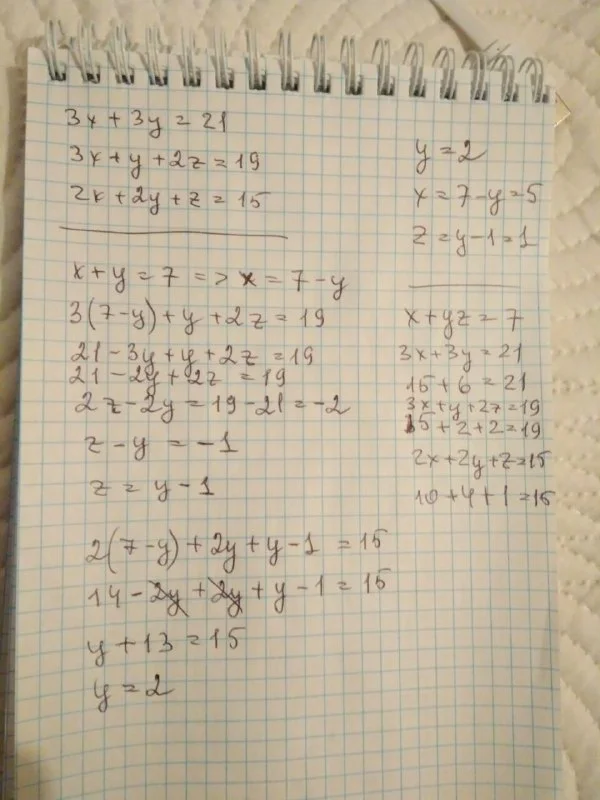 3x + 3y = 21
3x + y + 2z = 19
2x + 2y + z = 15
x + y = 7 => x = 7 - y
3(7 - y) + y + 2z = 19
21 - 3y + y + 2z = 19
21 - 2y + 2z = 19
2z - 2y = 19 - 21 = -2
z - y = -1
z = y - 1
2(7 - y) + 2y + y - 1 = 15
14 - 2y + 2y + y - 1 = 15
y + 13 = 15
y = 2
y = 2
x = 7 - y = 5
z = y - 1 = 1
x + yz = 7
3x + 3y = 21
15 + 6 = 21
3x + y + 2z = 19
15 + 2 + 2 = 19
2x + 2y + z = 15
10 + 4 + 1 = 15